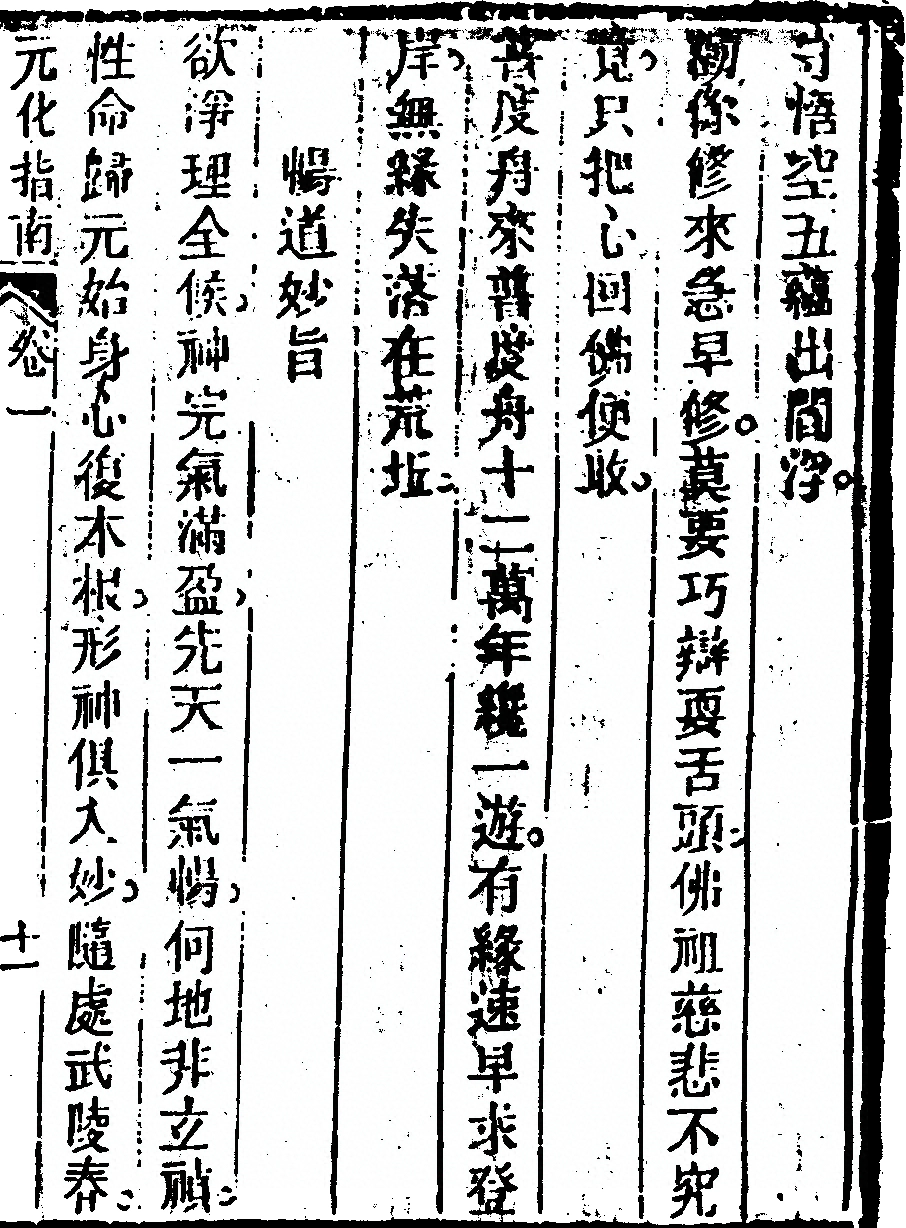 守悟空五蘊出閻浮。
勸你修來急早修。莫要巧辯耍舌頭。佛祖慈悲不究
竟只把心回佛便收。
普度舟來普度舟十二萬年纔一遊。有緣速早求登
岸無緣失落在荒坵。
暢道妙旨
欲淨理全候神完氣滿盈先天一氣暢何地非立禎
性命歸元始身心復本根形神俱入妙隨處武陵春
元化指南 卷一 十一